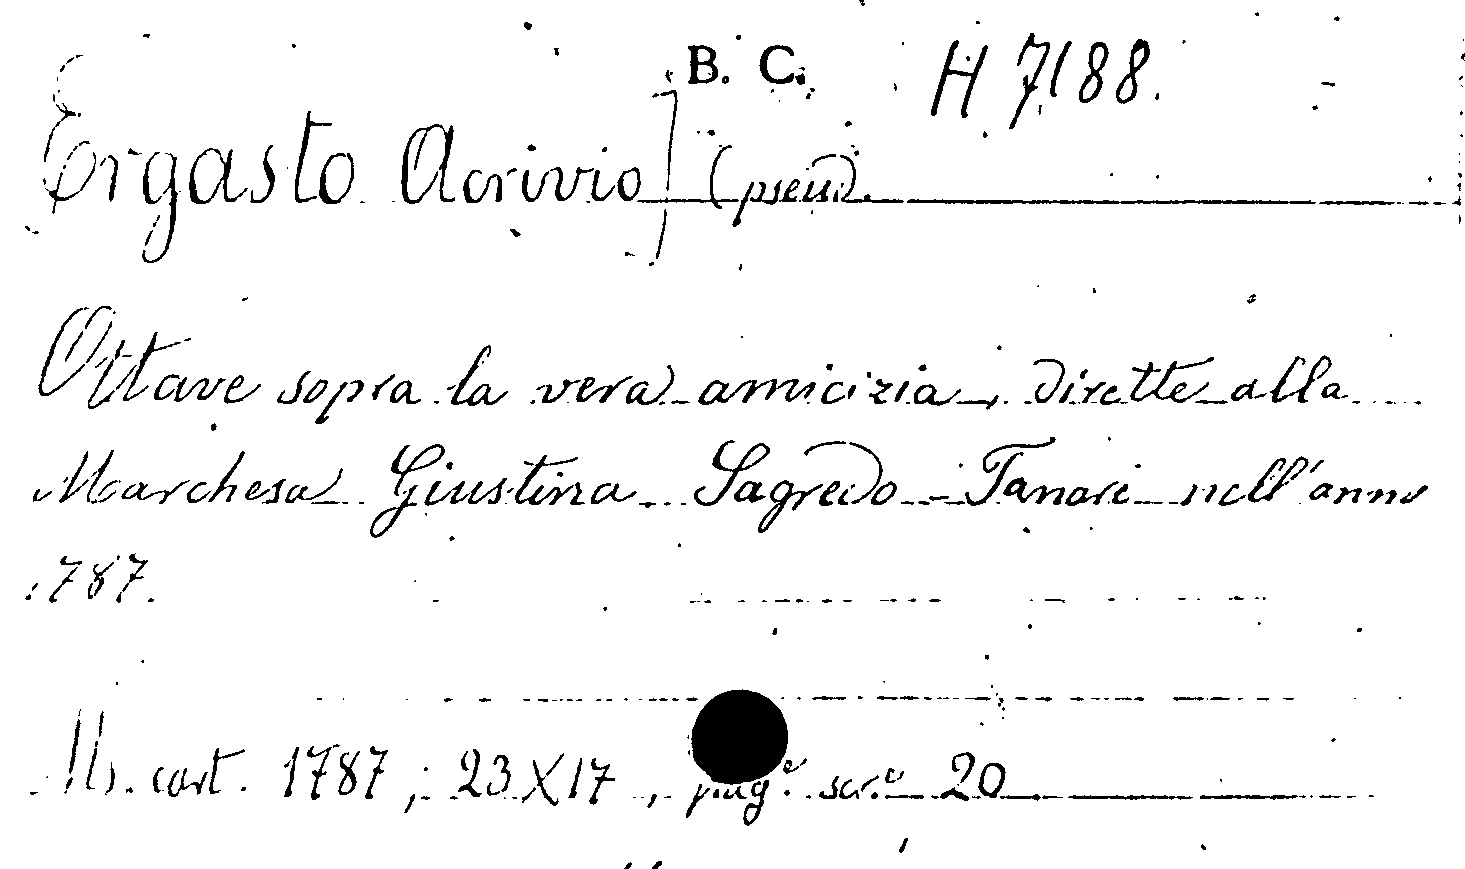 B. C. H 7188.
Ergasto Acrivio] (pseud.
Ottave sopra la vera amicizia, dirette alla
Marchesa Giustina Sagredo-Tanari nell'anno
1787.
Ms. cart. 1787, 23X17, pag.e scr.e 20